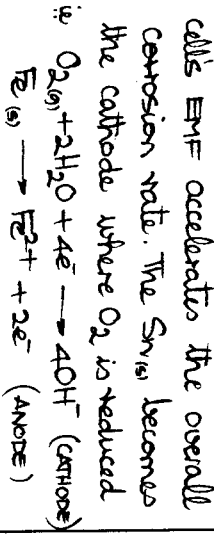 cell's EMF accelerates the overall
corrosion rate. The Sn(s) becomes
the cathode where O₂ is reduced
ie O₂(g) + 2H₂O + 4e⁻ → 4OH⁻ (CATHODE)
Fe(s) → Fe²⁺ + 2e⁻ (ANODE)